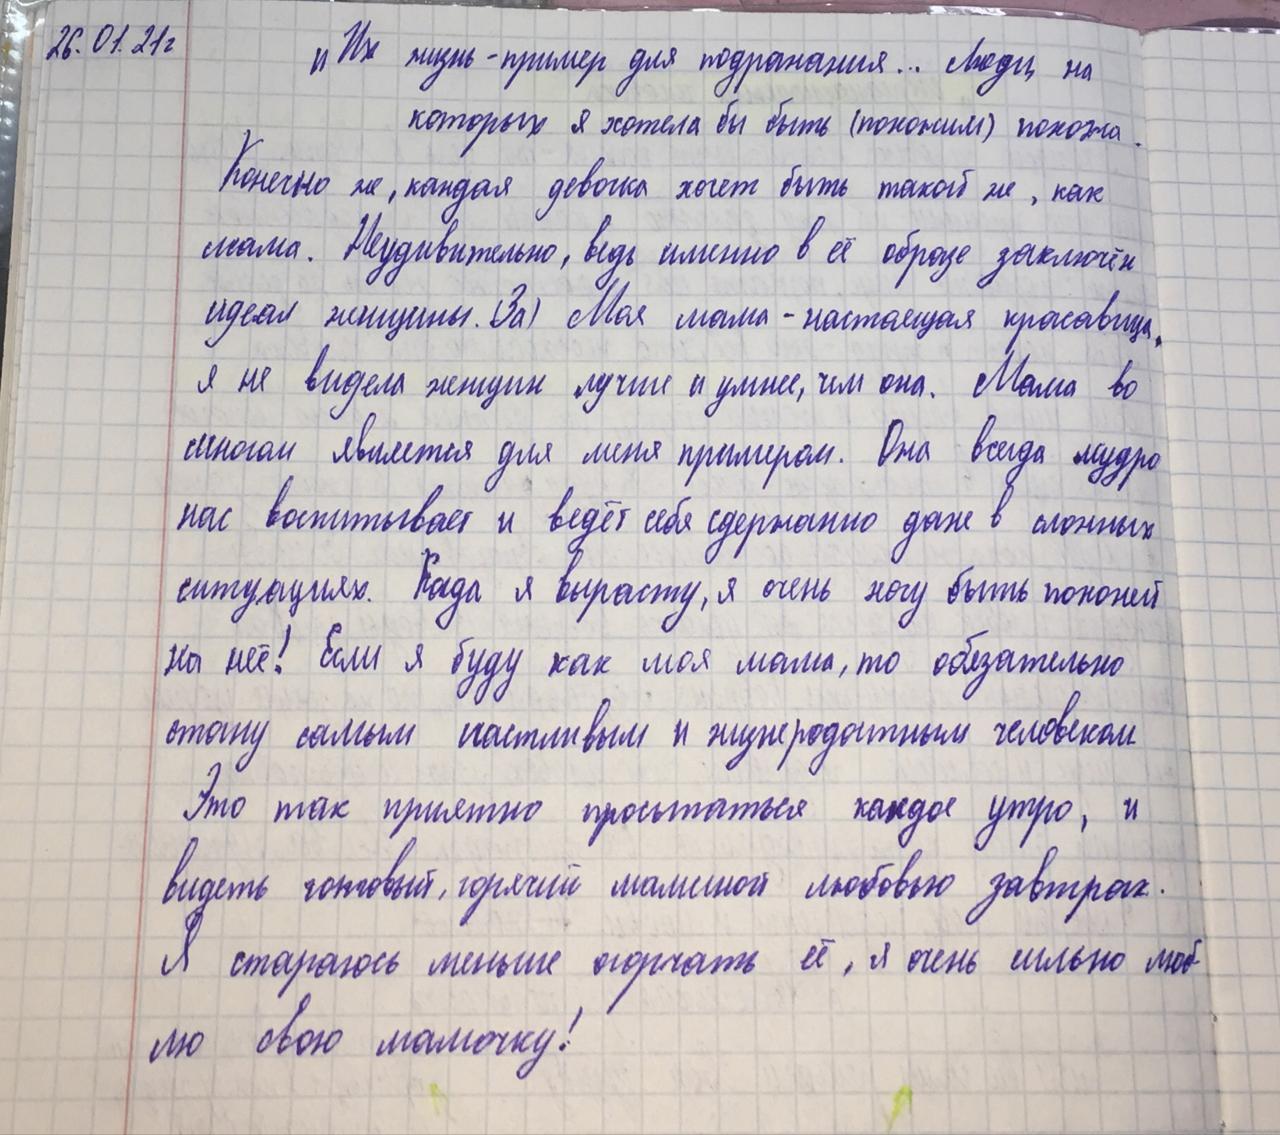 26.01.21г
„Их жизнь - пример для подражания... Люди, на
которых я хотела бы быть (похожим) похожа.
Конечно же, каждая девочка хочет быть такой же, как
мама. Неудивительно, ведь именно в её образе заключён
идеал женщины. (За) Моя мама - настоящая красавица,
я не видела женщин лучше и умнее, чем она. Мама во
многом является для меня примером. Она всегда мудро
нас воспитывает и ведёт себя сдержанно даже в сложных
ситуациях. Когда я вырасту, я очень хочу быть похожей
на неё! Если я буду как моя мама, то обязательно
стану самым счастливым и жизнерадостным человеком
Это так приятно просыпаться каждое утро, и
видеть готовый, горячий маминой любовью завтрак.
Я стараюсь меньше огорчать её, я очень сильно люб
лю свою мамочку!